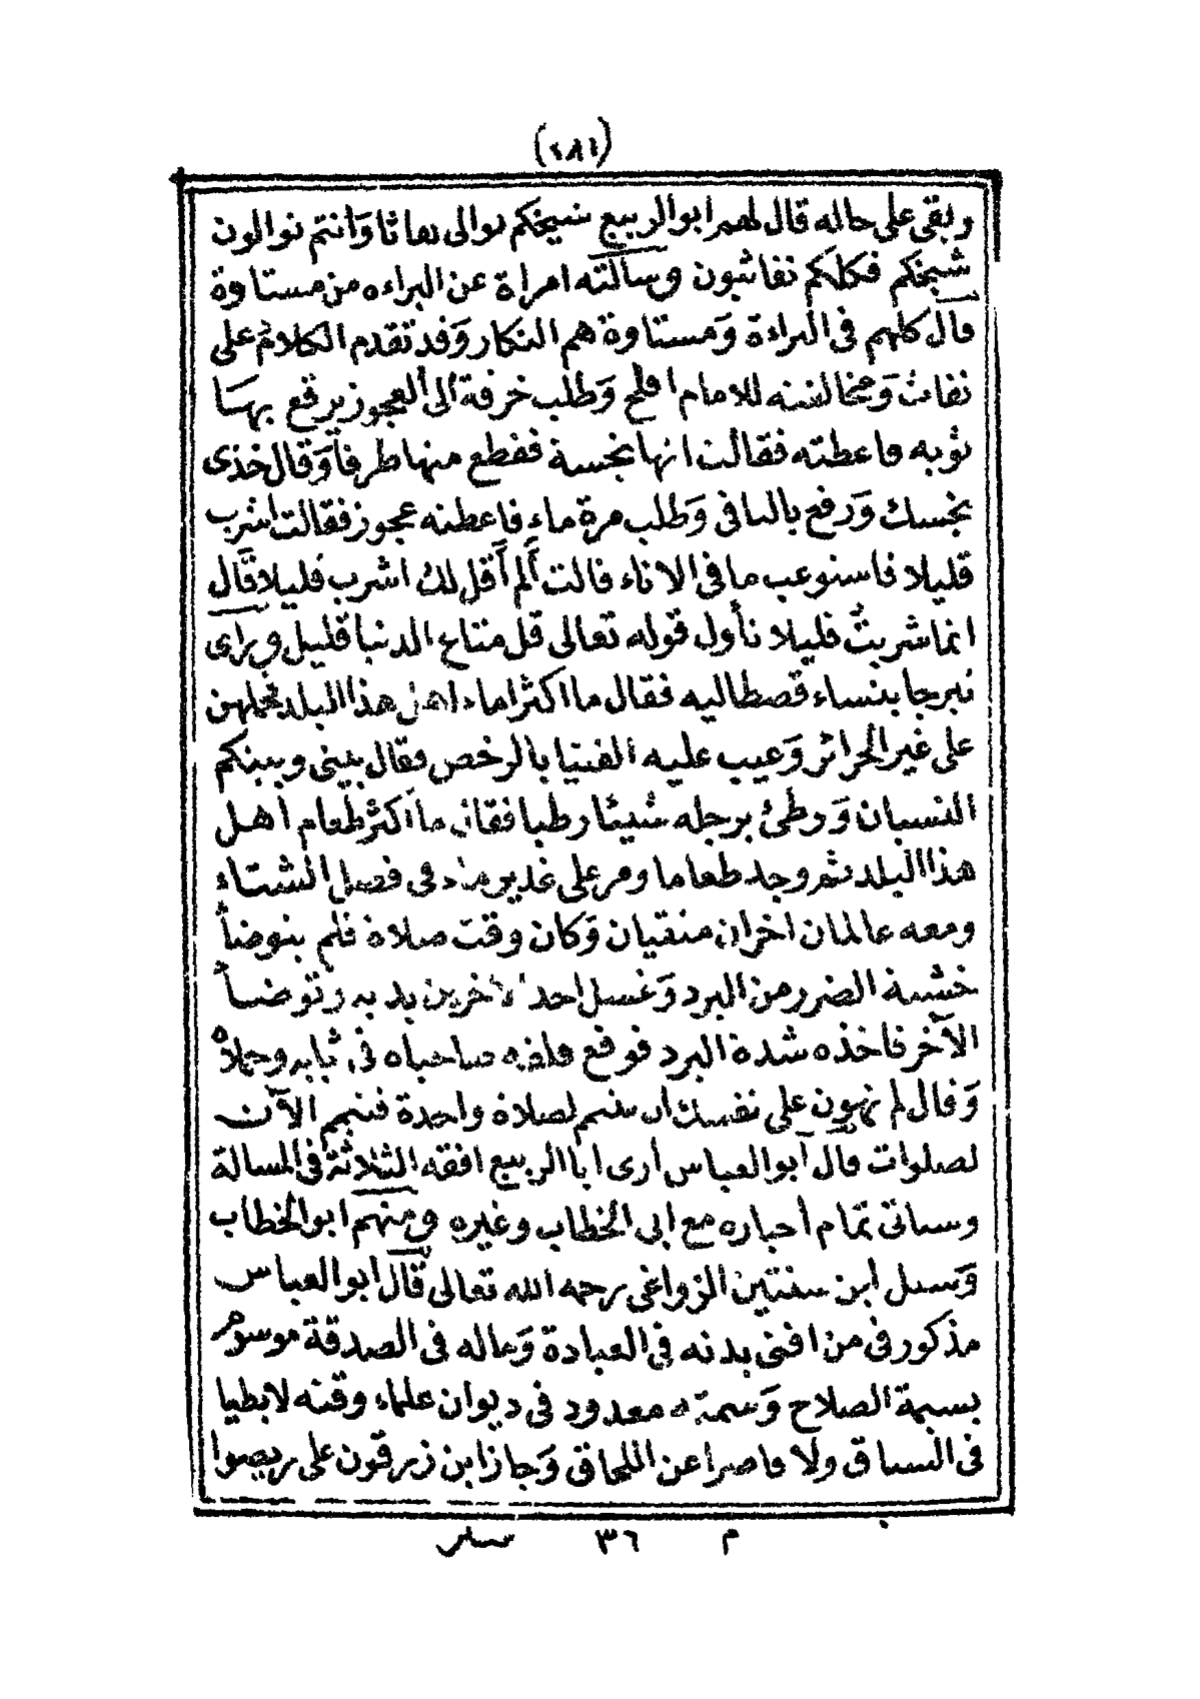 (٢٨١)
وبقى على حاله قال لهم ابو الربيع شيخكم يوالى نفاثا وَانتم توالون
شيخكم فكلكم نفاثيون وسألته امراة عن البراءه من مستاوة
قال كلهم فى البراءة وَمستاوة هم النكار وَقد تقدم الكلام على
نفاث وَمخالفته للامام افلح وَطلب خرقة الى العجوز يرقع بها
ثوبه فاعطته فقالت انها نجسة فقطع منها طرفا وَقال خذى
نجسك وَرقع بالباقى وَطلب مرة ماء فاعطته عجوز فقالت اشرب
قليلا فاستوعب ما فى الاناء قالت ألم أقل لك اشرب قليلا قال
انما شربتُ قليلا تأول قوله تعالى قل متاع الدنيا قليل ورأى
تبرجا بنساء قصطاليه فقال ما اكثر اماء اهل هذا البلد يحملهن
على غير الحرائر وَعيب عليه الفتيا بالرخص فقال بينى وبينكم
النسيان وَوطئ برجله شيئا رطبا فقال ما اكثر طعام اهل
هذا البلد ثم وجد طعاما ومر على غدير ماء فى فصل الشتاء
ومعه عالمان اخران متقيان وَكان وقت صلاة فلم يتوضأ
خشية الضرر من البرد وَغسل احد الآخرين يديه وتوضأ
الآخر فاخذه شدة البرد فوقع فلفه صاحباه فى ثيابه وحملاه
وَقال لم تهون على نفسك ان تتيمم لصلاة واحدة فتيمم الآن
لصلوات قال أبو العباس أرى ابا الربيع افقه الثلاثة فى المسالة
وسياتى تمام أخباره مع ابى الخطاب وغيره ومنهم ابو الخطاب
وَسيل ابن سنتين الزواغى رحمه الله تعالى قال ابو العباس
مذكور فى من افنى بدنه فى العبادة وَماله فى الصدقة موسوم
بسيمة الصلاح وَسمته معدود فى ديوان علماء وقته لا بطيا
فى السباق ولا قاصرا عن اللحاق وَجاز ابن زرقون على
م ٣٦ سير